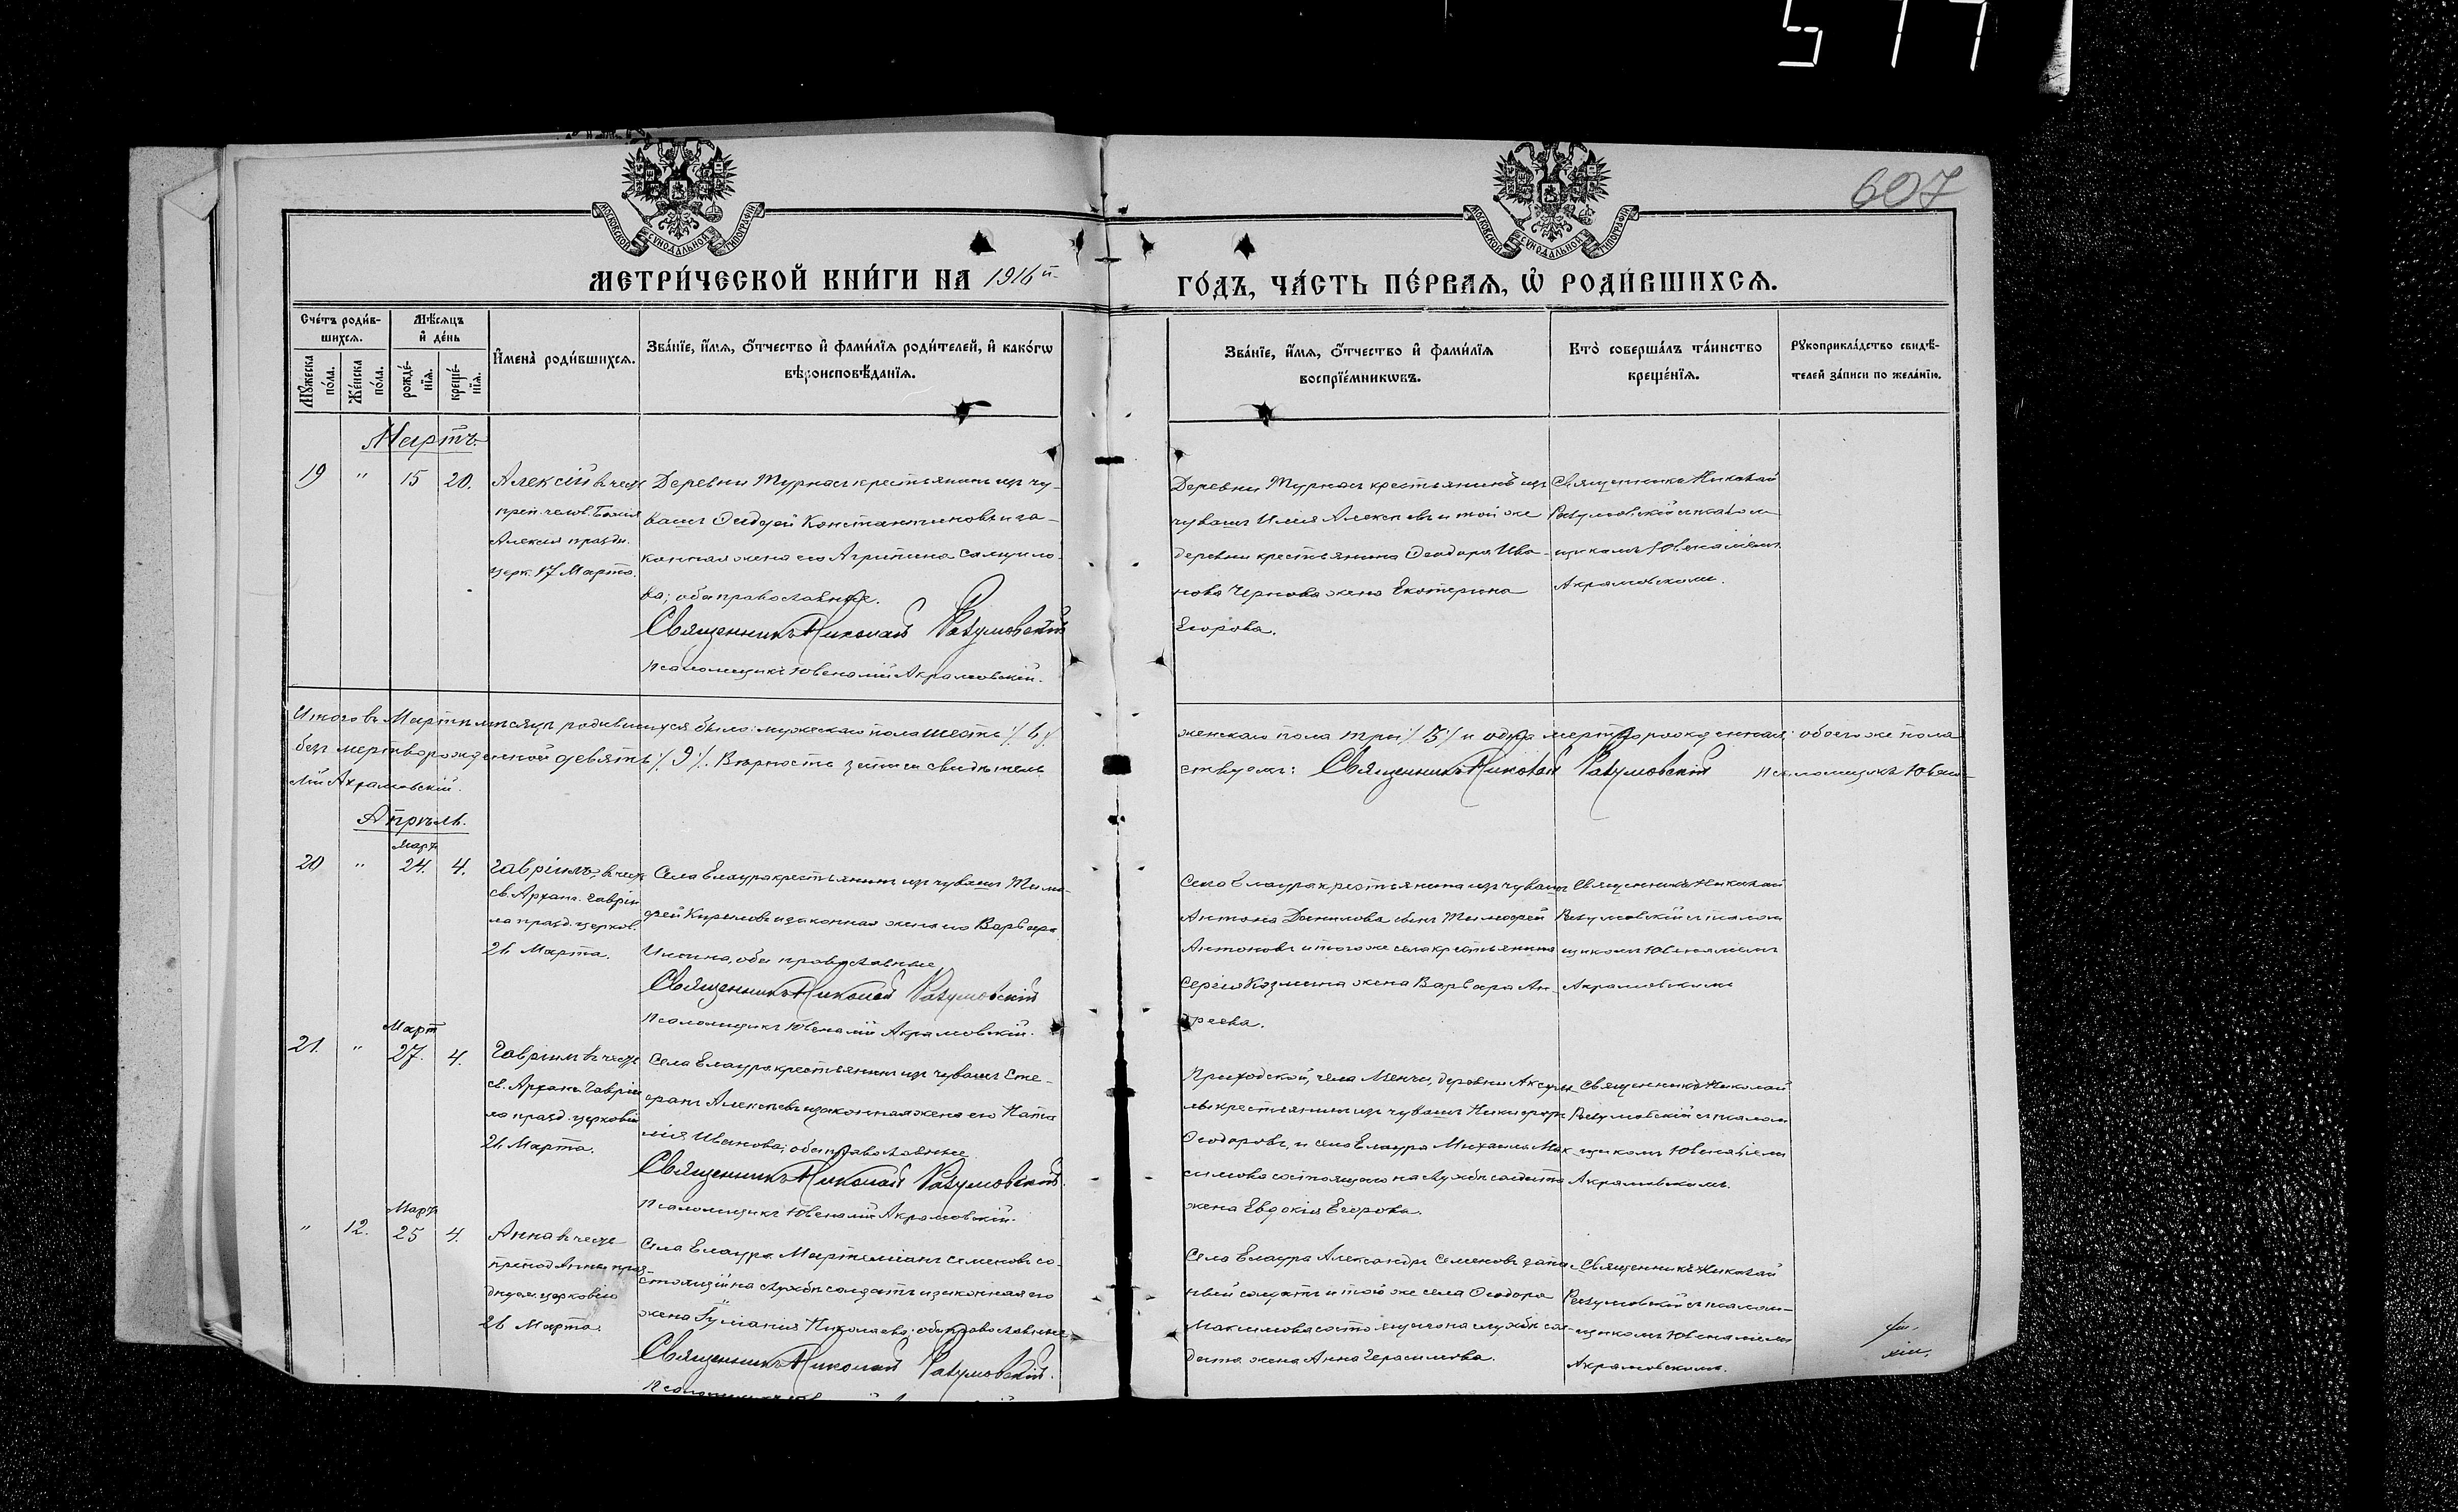 577
607
МОСКОВСКОЙ СѴНОДАЛЬНОЙ ТИПОГРАФІИ
МОСКОВСКОЙ СѴНОДАЛЬНОЙ ТИПОГРАФІИ
МЕТРИ́ЧЕСКОЙ КНИ́ГИ НА 1916й
ГО́ДЪ, ЧА́СТЬ ПЕ́РВАѦ, Ѽ РОДИ́ВШИХСѦ.
Сче́тъ роди́в-
шихсѧ.
Мѣ́сѧцъ
и҆ де́нь
Мꙋжеска
по́ла.
Же́нска
по́ла.
рожде́-
нїѧ.
креще́-
нїѧ.
И҆мена̀ роди́вшихсѧ.
Зва́нїе, и҆́мѧ, ѻ҆́тчество и҆ фами́лїѧ роди́телей, и҆ како́гѡ
вѣроисповѣ́данїѧ.
Зва́нїе, и҆́мѧ, ѻ҆́тчество и҆ фами́лїѧ
воспрїе́мникѡвъ.
Кто̀ соверша́лъ та́инство
креще́нїѧ.
Рꙋкоприкла́дство свидѣ́-
телей за́писи по жела́нїю.
Мартъ
19 " 15 20.
Алексій въ честь
преп. челов. Божія
Алексія праздн.
церк. 17 Марта.
Деревни Турнасъ крестьянинъ изъ чу-
вашъ Ѳеодоръ Константиновъ и за-
конная жена его Агрипина
ва; оба православные.
Священникъ Николай Разумовскій
Псаломщикъ Ювеналій Акрамовскій.
Деревни Турнасъ крестьянинъ изъ
чувашъ Илія Алексѣевъ и той же
деревни крестьянина Ѳеодора Ива-
нова Чернова жена Екатерина
Егорова.
Священникъ Николай
Разумовскій съ псалом-
щикомъ Ювеналіемъ
Акрамовскимъ.
Итого въ Мартѣ мѣсяцѣ родившихся было: мужескаго пола шесть /6/
женскаго пола три /3/ и одна мертворожденная; обоего же пола
безъ мертворожденной девять /9/. Вѣрность записи свидѣтель-
ствуемъ: Священникъ Николай Разумовскій Псаломщикъ Ювена-
лій Акрамовскій.
Апрѣль.
Март
20 " 24. 4.
Гавріилъ, въ честь
св. Архан. Гаврiи
ла празд. церков.
26 Марта.
Села Елаура крестьянинъ изъ чувашъ Тимо-
фей Кириловъ и законная жена его Варвара
Ильина, оба православные
Священникъ Николай Разумовскій
Псаломщикъ Ювеналій Акрамовскій.
Села Елаура крестьянина изъ чувашъ
Антона Данилова сынъ Тимофей
Антоновъ и того же села крестьянина
Сергія Козмина жена Варвара Ан-
дреева.
Священникъ Николай
Разумовскій съ псалом
щикомъ Ювеналіемъ
Акрамовскимъ
Март
21. " 27. 4.
Гавріилъ въ честь
св. Архан. Гаврiи
ла празд. церковію
26 Марта.
Села Елаура крестьянинъ изъ чувашъ Сте-
фанъ Алексѣевъ и законная жена его Ната
лія Иванова; оба православные
Священникъ Николай Разумовскій.
Псаломщикъ Ювеналій Акрамовскій.
деревни
крестьянинъ изъ чувашъ Никифоръ
Ѳеодоровъ, и села Елаура Михаила Мак-
симова состоящаго на службѣ солдата
жена Евдокія Егорова.
Священникъ Николай
Разумовскій съ псалом
щикомъ Ювеналіемъ
Акрамовскимъ.
Март
" 12. 25 4.
Анна въ честь
препод Анны праз-
днуем. церковію
26 Марта.
Села Елаура Мартеміанъ Семеновъ со-
стоящій на службѣ солдатъ и законная его
жена Іуліанія Николаева; оба православные
Священникъ Николай Разумовскій.
Села Елаура Александръ Семеновъ запас-
ный солдатъ и той же села Ѳеодора
Максимова состоящаго на службѣ сол-
дата жена Анна Герасимова.
Священникъ Николай
Разумовскій съ псалом-
щикомъ Ювеналіемъ
Акрамовскимъ.